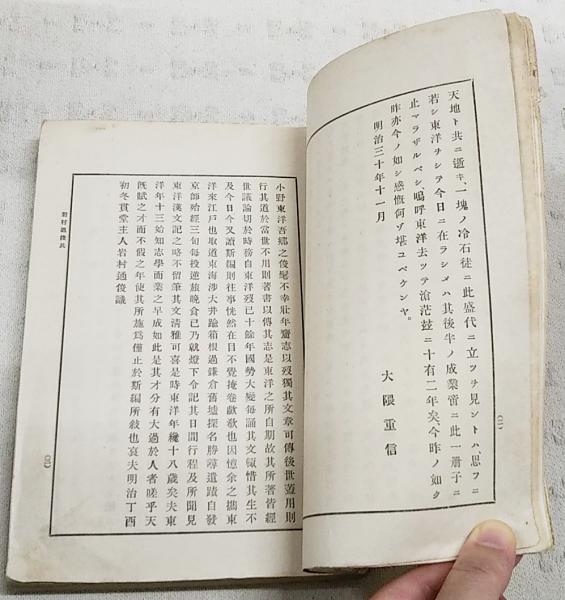 天地ト共ニ逝キ、一塊ノ冷石徒ニ此盛代ニ立ツヲ見ントハ、思フニ
若シ東洋ヲシテ今日ニ在ラシメハ其後半ノ成業啻ニ此一册子ニ
止マラザルベシ、嗚呼東洋去ツテ滄茫玆ニ十有二年矣、今昨ノ如ク
昨亦今ノ如シ感慨何ゾ堪ユベケンヤ。
明治三十年十一月
大隈重信
(二)
小野東洋吾鄉之俊髦不幸壯年齎志以歿獨其文章可傳後世蓋用則
行其道於當世不用則著書以傳其志是東洋之所自期故其所著皆經
世議論切於時務自東洋歿已十餘年國勢大變每誦其文輙惜其生不
及今日今又讀斯編則往事恍然在目不覺掩卷歔欷也因憶余之攜東
洋來江戶也取道東海涉大井踰箱根過鎌倉舊墟探名勝尋遺蹟自發
京師殆經三旬每投逆旅晚食已乃就燈下令記其日間行程及所聞見
東洋漢文記之略不留筆其文淸雅可喜是時東洋年纔十八歲矣夫東
洋年十三始知志學而業之早成如此是其才分有大過於人者嗟乎天
旣賦之才而不假之年使其所施爲僅止於斯編所敍也哀夫明治丁酉
初冬貫堂主人岩村通俊識
岩村通俊氏
(三)